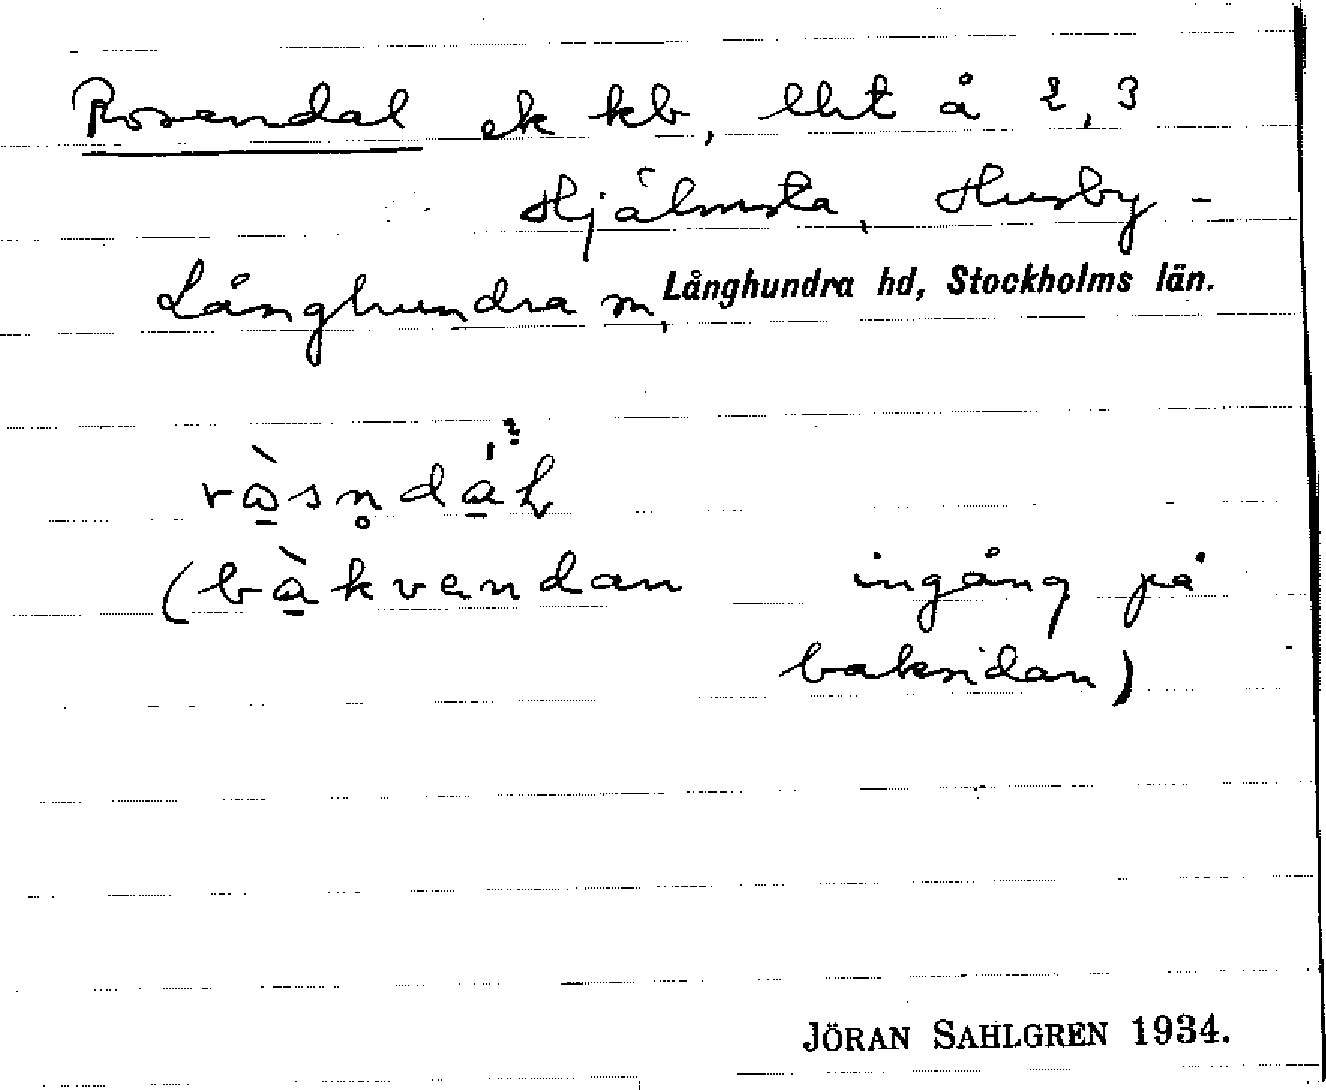 Rosendal ek kb, lht å 2, 3
Hjälmsta, Husby-
Långhundra sn, Långhundra hd, Stockholms län.
(bàkvendan ingång på
baksidan)
JÖRAN SAHLGREN 1934.